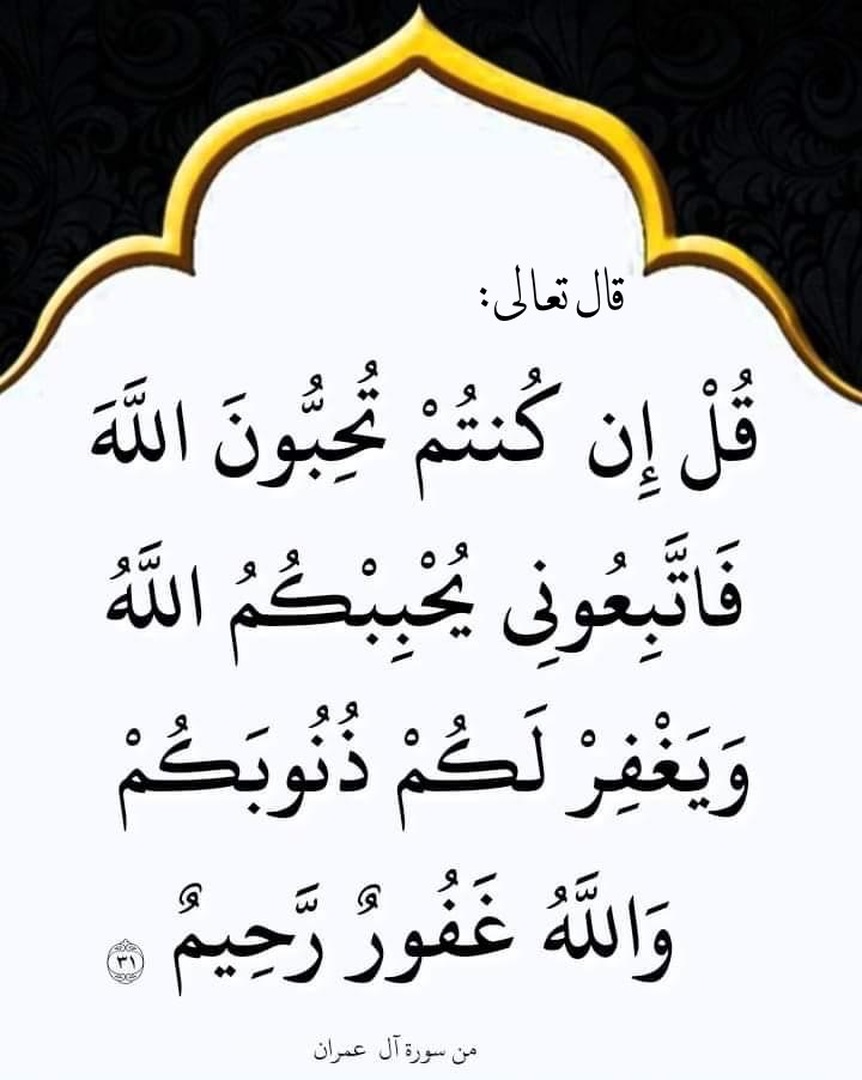 قال تعالى:
قُلْ إِن كُنتُمْ تُحِبُّونَ اللَّهَ
فَاتَّبِعُونِى يُحْبِبْكُمُ اللَّهُ
وَيَغْفِرْ لَكُمْ ذُنُوبَكُمْ
وَاللَّهُ غَفُورٌ رَّحِيمٌ ٣١
من سورة آل عمران